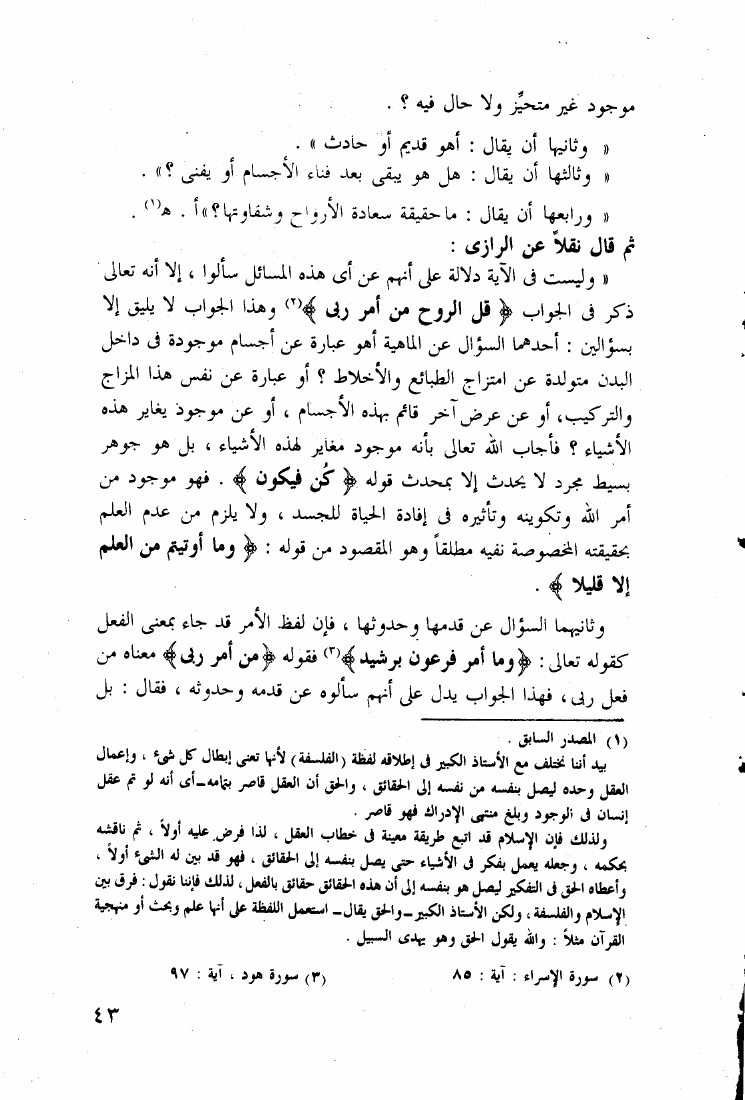 موجود غير متحيِّز ولا حال فيه ؟ .
« وثانيها أن يقال : أهو قديم أو حادث » .
« وثالثها أن يقال : هل هو يبقى بعد فناء الأجسام أو يفنى ؟» .
« ورابعها أن يقال : ما حقيقة سعادة الأرواح وشقاوتها؟»أ . هـ(١) .
ثم قال نقلاً عن الرازى :
« وليست فى الآية دلالة على أنهم عن أى هذه المسائل سألوا ، إلا أنه تعالى
ذكر فى الجواب ﴿ قل الروح من أمر ربى ﴾(٢) وهذا الجواب لا يليق إلا
بسؤالين : أحدهما السؤال عن الماهية أهو عبارة عن أجسام موجودة فى داخل
البدن متولدة عن امتزاج الطبائع والأخلاط ؟ أو عبارة عن نفس هذا المزاج
والتركيب، أو عن عرض آخر قائم بهذه الأجسام ، أو عن موجود يغاير هذه
الأشياء ؟ فأجاب الله تعالى بأنه موجود مغاير لهذه الأشياء ، بل هو جوهر
بسيط مجرد لا يحدث إلا بمحدث قوله ﴿ كُن فيكون ﴾ . فهو موجود من
أمر الله وتكوينه وتأثيره فى إفادة الحياة للجسد ، ولا يلزم من عدم العلم
بحقيقته المخصوصة نفيه مطلقاً وهو المقصود من قوله : ﴿ وما أوتيتم من العلم
إلا قليلا ﴾ .
وثانيهما السؤال عن قدمها وحدوثها ، فإن لفظ الأمر قد جاء بمعنى الفعل
كقوله تعالى: ﴿وما أمر فرعون برشيد﴾(٣) فقوله ﴿من أمر ربى﴾ معناه من
فعل ربى، فهذا الجواب يدل على أنهم سألوه عن قدمه وحدوثه ، فقال : بل
(١) المصدر السابق .
بيد أننا نختلف مع الأستاذ الكبير فى إطلاقه لفظة (الفلسفة) لأنها تعنى إبطال كل شىء ، وإعمال
العقل وحده ليصل بنفسه من نفسه إلى الحقائق ، والحق أن العقل قاصر بتمامه–أى أنه لو تم عقل
إنسان فى الوجود وبلغ منتهى الإدراك فهو قاصر .
ولذلك فإن الإسلام قد اتبع طريقة معينة فى خطاب العقل ، لذا فرض عليه أولاً ، ثم ناقشه
بحكمه ، وجعله يعمل بفكر فى الأشياء حتى يصل بنفسه إلى الحقائق ، فهو قد بين له الشىء أولاً ،
وأعطاه الحق فى التفكير ليصل هو بنفسه إلى أن هذه الحقائق حقائق بالفعل، لذلك فإننا نقول : فرق بين
الإسلام والفلسفة، ولكن الأستاذ الكبير–والحق يقال– استعمل اللفظة على أنها علم وبحث أو منهجية
القرآن مثلاً : والله يقول الحق وهو يهدى السبيل .
(٢) سورة الإسراء : آية : ٨٥ (٣) سورة هود ، آية : ٩٧
٤٣